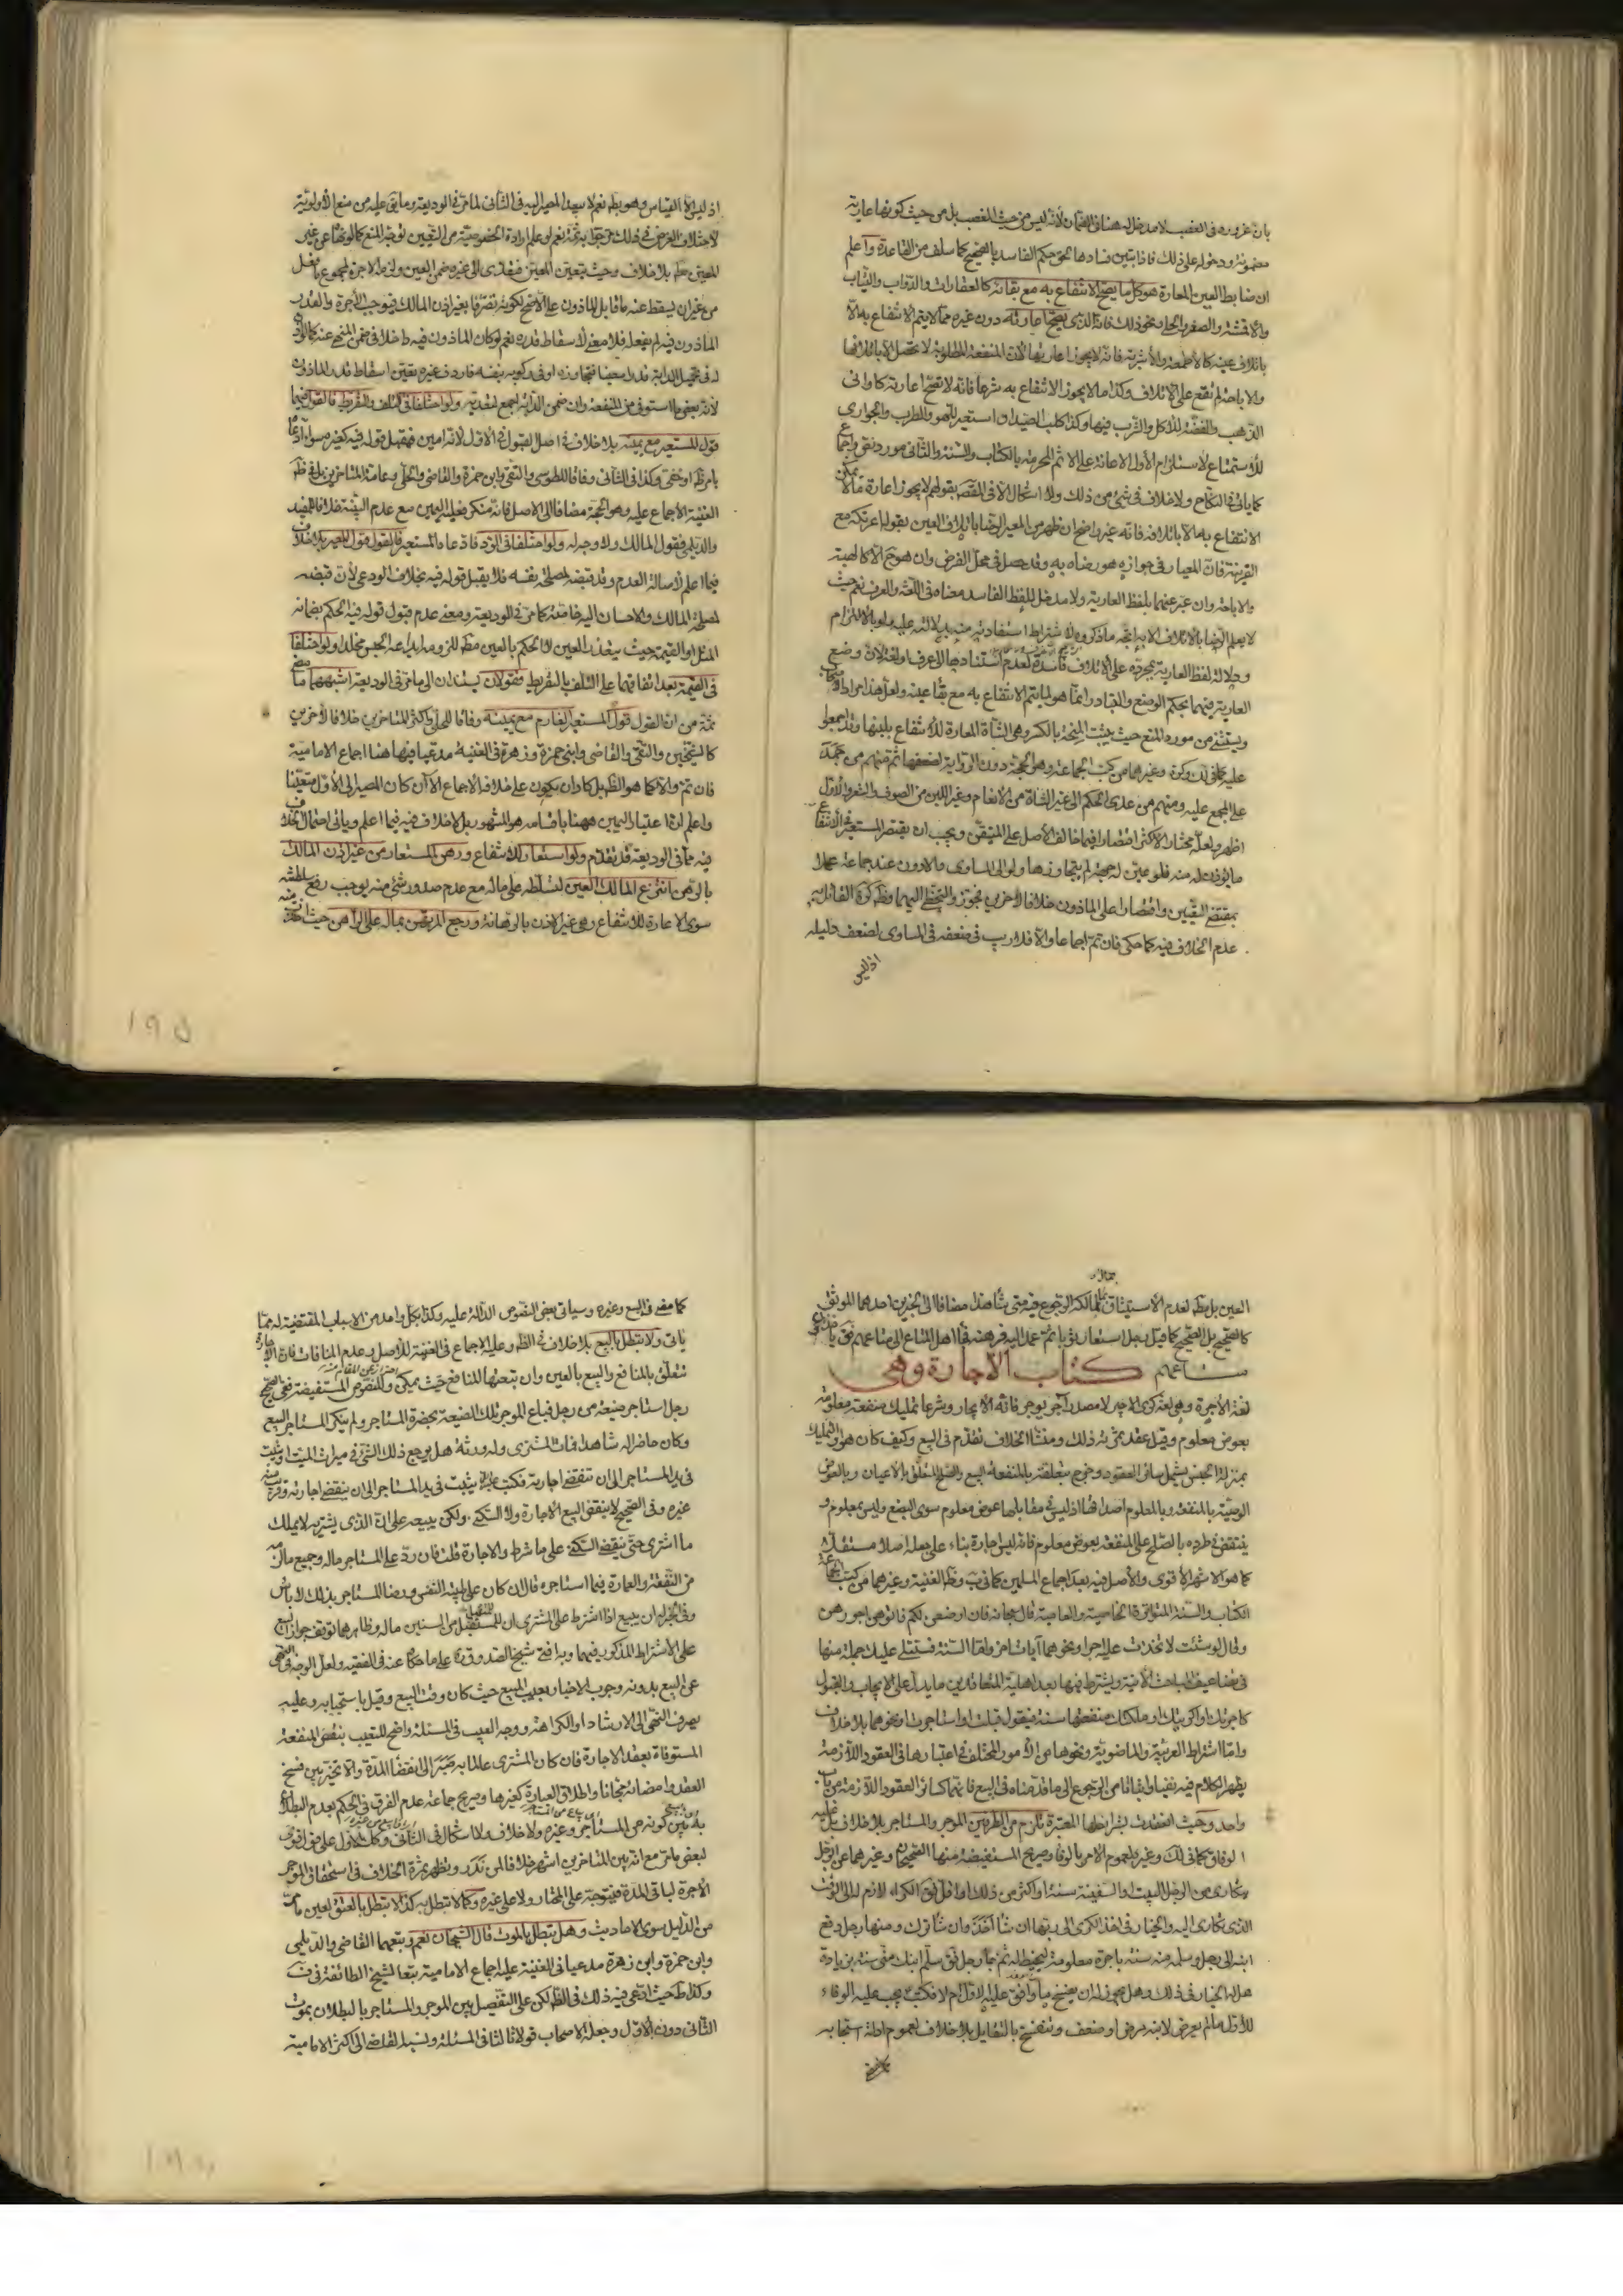 بان غروره فى الغصب لا مدخل له هنا فى الضمان لانه ليس من حيث الغصب بل من حيث كونها عارية
مضمونة ودخوله على ذلك فاذا تبين فسادها لحق حكم الفاسد بالصحيح كما سلف من القاعدة واعلم
ان ضابط العين المعارة هو كل ما يصح الانتفاع به مع بقائه كالعقارات والدواب والثياب
والاقمشة والصفر والحلى ونحو ذلك فانه الذى يصح اعارته دون غيره مما لا يتم الانتفاع به الا
باتلاف عينه كالاطعمة والاشربة فانه لا يجوز اعارتها لان المنفعة المطلوبة لا تحصل الا باتلافها
والاباحة لم تقع على الاتلاف وكذا ما لا يجوز الانتفاع به شرعا فانه لا تصح اعارته كاوانى
الذهب والفضة للاكل والشرب فيها وكذا كلب الصيد لو استعير للهو والطرب والجوارى
للاستمتاع لاستلزام الاول الاعانة على الاثم المحرمة بالكتاب والسنة والثانى مورد نص واجماع
كما ياتى فى النكاح ولا خلاف فى شئ من ذلك ولا اشكال الا فى القصر بقولهم لا يجوز اعارة ما لا يمكن
الانتفاع به الا باتلافه فانه غير واضح ان ظهر من المعير الرضا باتلاف العين بقوله اعرتكه مع
القرينة فان المعيار فى جوازه هو رضاه به وقد حصل فى محل الفرض وان هو ح الا كالهبة
والاباحة وان عبر عنهما بلفظ العارية ولا مدخل للفظ الفاسد معناه فى اللغة والعرف نعم حيث
لا يعلم الرضا بالاتلاف الا به اتجه ما ذكروه لاشتراط استفادته منه بدلالته عليه ولو بالالتزام
ودلالة لفظ العارية بمجرده على الاتلاف فاسدة لعدم استنادها الى عرف او لغة لان وضع
العارية فيهما بحكم الوضع والتبادر انما هو لما يتم الانتفاع به مع بقاء عينه ولعل هذا مراد الاصحاب
ويستثنى من مورد المنع حيث يثبت المنحة بالكسر وهى الشاة المعارة للانتفاع بلبنها وقد اجمعوا
عليه كما فى لك وكره وغيرهما من كتب الجماعة وهو الحجة دون الرواية لضعفها ثم منهم من جمد
على المجمع عليه ومنهم من عدى الحكم الى غير الشاة من الانعام وغير اللبن من الصوف والشعر والاول
اظهر ولعله مختار الاكثر اقتصارا فيما خالف الاصل على المتيقن ويجب ان يقتصر المستعير فى الانتفاع
ما يؤذن له منه فلو عين له جهة لم يتجاوزها ولو الى المساوى والادون عند جماعة عملا
بمقتضى التعيين واقتصارا على الماذون خلافا لاخرين فجوزوا التخطى اليهما وظ كره القائل به
عدم الخلاف فيه كما حكى فان تم اجماعا والا فلا ريب فى ضعفه فى المساوى لضعف دليله
اذ ليس
اذ ليس الا القياس وهو بط نعم لا يبعد المصير اليه فى الثانى لما مر فى الوديعة وما بقى عليه من منع الاولوية
لاختلاف الغرض فى ذلك مر جوابه ثمة نعم لو علم ارادة الخصوصية من التعيين توجه المنع كما لو نهاه عن غير
المعين مط بلا خلاف وحيث تعين المعين فتعدى الى غيره ضمن العين ولزمه الاجرة لمجموع ما فعل
من غير ان يسقط عنه ما قابل الماذون على الاصح لكونه تصرفا بغير اذن المالك فيوجب الاجرة والقدر
الماذون فيه لم يفعله فلا معنى لاسقاط قدره نعم لو كان الماذون فيه داخلا فى ضمن المنهى عنه كما لو اذن
له فى تحميل الدابة قدرا معينا فتجاوزه او فى ركوبه بنفسه فاردف غيره تعين اسقاط قدر الماذون
لانه بعض ما استوفى من المنفعة وان ضمن الدابة اجمع لتعديه ولو اختلفا فى التلف والتفريط فالقول فيهما
قول المستعير مع يمينه بلا خلاف فى اصل القبول فى الاول لانه امين فيقبل قوله فيه كغيره سواء ادعاه
بامر ظ او خفى وكذا فى الثانى وفاقا للطوسى والتقى وابن حمزة والقاضى والحلى وعامة المتاخرين بل فى ظ
الغنية الاجماع عليه وهو الحجة مضافا الى الاصل فانه منكر فعليه اليمين مع عدم البينة خلافا للمفيد
والديلمى فقول المالك ولا وجه له ولو اختلفا فى الرد فادعاه المستعير فالقول قول المعير بلا خلاف
فيما اعلم لاصالة العدم وقد قبضه لمصلحة نفسه فلا يقبل قوله فيه بخلاف الودعى لان قبضه
لمصلحة المالك والاحسان اليه خاصة كما مر فى الوديعة ومعنى عدم قبول قوله فيه الحكم بضمانه
المثل او القيمة حيث يتعذر العين لا الحكم بالعين مط للزومه ايداعه الحبس مخلدا ولو اختلفا
فى القيمة بعد اتفاقهما على التلف بالتفريط فقولان يستندان الى ما مر فى الوديعة اشبههما ما مضى
ثمة من ان القول قول المستعير الغارم مع يمينه وفاقا للحلى واكثر المتاخرين خلافا لاخرين
كالشيخين والتقى والقاضى وابنى حمزة وزهرة فى الغنية مدعيا فيها هنا اجماع الامامية
فان تم والا كما هو الظ بل كاد ان يكون على خلافه الاجماع الان كان المصير الى الاول متعينا
واعلم ان اعتبار اليمين ههنا باقسامه هو المشهور بل لا خلاف فيه فيما اعلم وياتى احتمال الخلاف
فيه مما فى الوديعة قد تقدم ولو استعار للانتفاع ورهن المستعار من غير اذن المالك
بالرهن انتزع المالك العين لتسلطه على ماله مع عدم صدور شئ منه يوجب رفع سلطنته
سوى الاعارة للانتفاع وهى غير الاذن بالرهانة ورجع المرتهن بماله على الراهن حيث اخذت منه
١٩٥
العين بل مط لعدم الاستيثاق لمالكه الرجوع فيه متى شاء هذا مضافا الى الخبرين احدهما الموثق
كالصحيح بل الصحيح كما قيل رجل استعار ثوبا ثم عمد اليه فرهنه فجاء اهل المتاع الى متاعهم فق ياخذون
متاعهم كتاب الاجارة وهى
لغة الاجرة وهى لغة كرى الاجير لا مصدر آجر يوجر فانه الايجار وشرعا تمليك منفعة معلومة
بعوض معلوم وقيل عقد ثمرته ذلك ومنشأ الخلاف تقدم فى البيع وكيف كان هو التمليك
بمنزلة الجنس يشمل سائر العقود وخرج بتعلقه بالمنفعة البيع والصلح المتعلق بالاعيان وبالعوض
الوصية بالمنفعة وبالمعلوم اصداقها اذ ليس فى مقابلها عوض معلوم سوى البضع وليس بمعلوم و
ينتقض فى طرده بالصلح على المنفعة بعوض معلوم فانه ليس اجارة بناء على جعله اصلا مستقلا
كما هو الاشهر الاقوى والاصل فيه بعد اجماع المسلمين كما فى يب وظ الغنية وغيرهما من كتب الجماعة
الكتاب والسنة المتواترة الخاصية والعامية قال سبحانه فان ارضعن لكم فاتوهن اجورهن
وقال لو شئت لاتخذت عليه اجرا ونحوهما آيات اخر واما السنة فستتلى عليك جملة منها
فى تضاعيف المباحث الاتية ويشترط فيها بعد اهلية المتعاقدين ما يدل على الايجاب والقبول
كاجرتك او اكريتك او ملكتك منفعتها سنة فيقول قبلت او استاجرت او نحوهما بلا خلاف
واما اشتراط العربية والماضوية ونحوها من الامور المختلف فى اعتبارها فى العقود اللازمة
يظهر الكلام فيه نفيا واثباتا من الرجوع الى ما قدمناه فى البيع فانهما كسائر العقود اللازمة من باب
واحد وحيث انعقدت بشرائطها المعتبرة تلزم من الطرفين الموجر والمستاجر بلا خلاف بل عليه
الوفاق كما فى لك وغيره لعموم الامر بالوفاء وصريح المستفيضة منها الصحيحان وغيرهما عن الرجل
يتكارى من الرجل البيت والسفينة سنة او اكثر من ذلك او اقل فق الكراء لازم له الى الوقت
الذى تكارى اليه والخيار فى اخذ الكرى الى ربها ان شاء اخذ وان شاء ترك ومنها رجل دفع
ابنه الى رجل وسلمه منه سنة باجرة معلومة ليخيط له ثم جاء رجل فق سلم ابنك منى سنة بزيادة
هل له الخيار فى ذلك وهل يجوز له ان يفسخ ما وافق عليه الاول ام لا فكتب يجب عليه الوفاء
للاول ما لم يعرض لابنه مرض او ضعف وتنفسخ بالتقايل بلا خلاف لعموم ادلة استحبابه
كما مضى فى البيع وغيره وسياتى بعض النصوص الدالة عليه وكذا بكل واحد من الاسباب المقتضية له مما
ياتى ولا تبطل بالبيع بلا خلاف فى الظ وعليه الاجماع فى الغنية للاصل وعدم المنافات فان الاجارة
تتعلق بالمنافع والبيع بالعين وان تبعتها المنافع حيث يمكن وللنصوص المستفيضة ففى الصحيح
رجل استاجر ضيعة من رجل فباع الموجر تلك الضيعة بحضرة المستاجر ولم ينكر المستاجر البيع
وكان حاضرا له شاهدا فمات المشترى وله ورثة هل يرجع ذلك الشئ فى ميراث الميت او يثبت
فى يد المستاجر الى ان تنقضى اجارته فكتب يثبت فى يد المستاجر الى ان ينقضى اجارته وقريب منه
غيره وفى الصحيح لا ينقض البيع الاجارة ولا السكنى ولكن يبيعه على ان الذى يشتريه لا يملك
ما اشترى حتى ينقضى السكنى على ما شرط والاجارة قلت فان رد على المستاجر ماله وجميع ما لزمه
من النفقة والعمارة فيما استاجره قال ان كان على طيبة النفس ورضا المستاجر بذلك لا باس
وفى الخبر له ان يبيع اذا اشترط على المشترى ان للمتقبل من السنين ماله وظاهرهما توقف جواز البيع
على الاشتراط المذكور فيهما وبه افتى شيخنا الصدوق ره على ما حكاه عنه فى الفقيه ولعل الوجه فى النهى
عن البيع بدونه وجوب الاخبار بعيب المبيع حيث كان وقت البيع وقيل باستحبابه وعليه
يصرف النهى الى الارشاد او الكراهة ووجه العيب فى المسئلة واضح للتعيب بنقص المنفعة
المستوفاة بعقد الاجارة فان كان المشترى عالما به صبر الى انقضاء المدة والا تخير بين فسخ
العقد وامضائه مجانا واطلاق العبارة كغيرها وصريح جماعة عدم الفرق فى الحكم بعدم البطلان
به بين كونه من المستاجر وغيره ولا خلاف ولا اشكال فى الثانى وكذا فى الاول على قول قوى
لبعض ما مر مع انه بين المتاخرين اشهر خلافا لمن ندر وتظهر ثمرة الخلاف فى استحقاق الموجر
الاجرة لباقى المدة فيتوجه على المختار ولا على غيره وكما لا تبطل به كذا لا تبطل بالعتق لعين ما مر
من الدليل سوى الاحاديث وهل تبطل بالموت قال الشيخان نعم وتبعهما القاضى والديلمى
وابن حمزة وابن زهرة مدعيا فى الغنية عليه اجماع الامامية تبعا لشيخ الطائفة فى ف
وكذا ط حيث ادعى فيه ذلك فى الظ لكن على التفصيل بين الموجر والمستاجر بالبطلان بموت
الثانى دون الاول وجعله الاصحاب قولا ثالثا فى المسئلة ونسبه القاضى الى اكثر الامامية